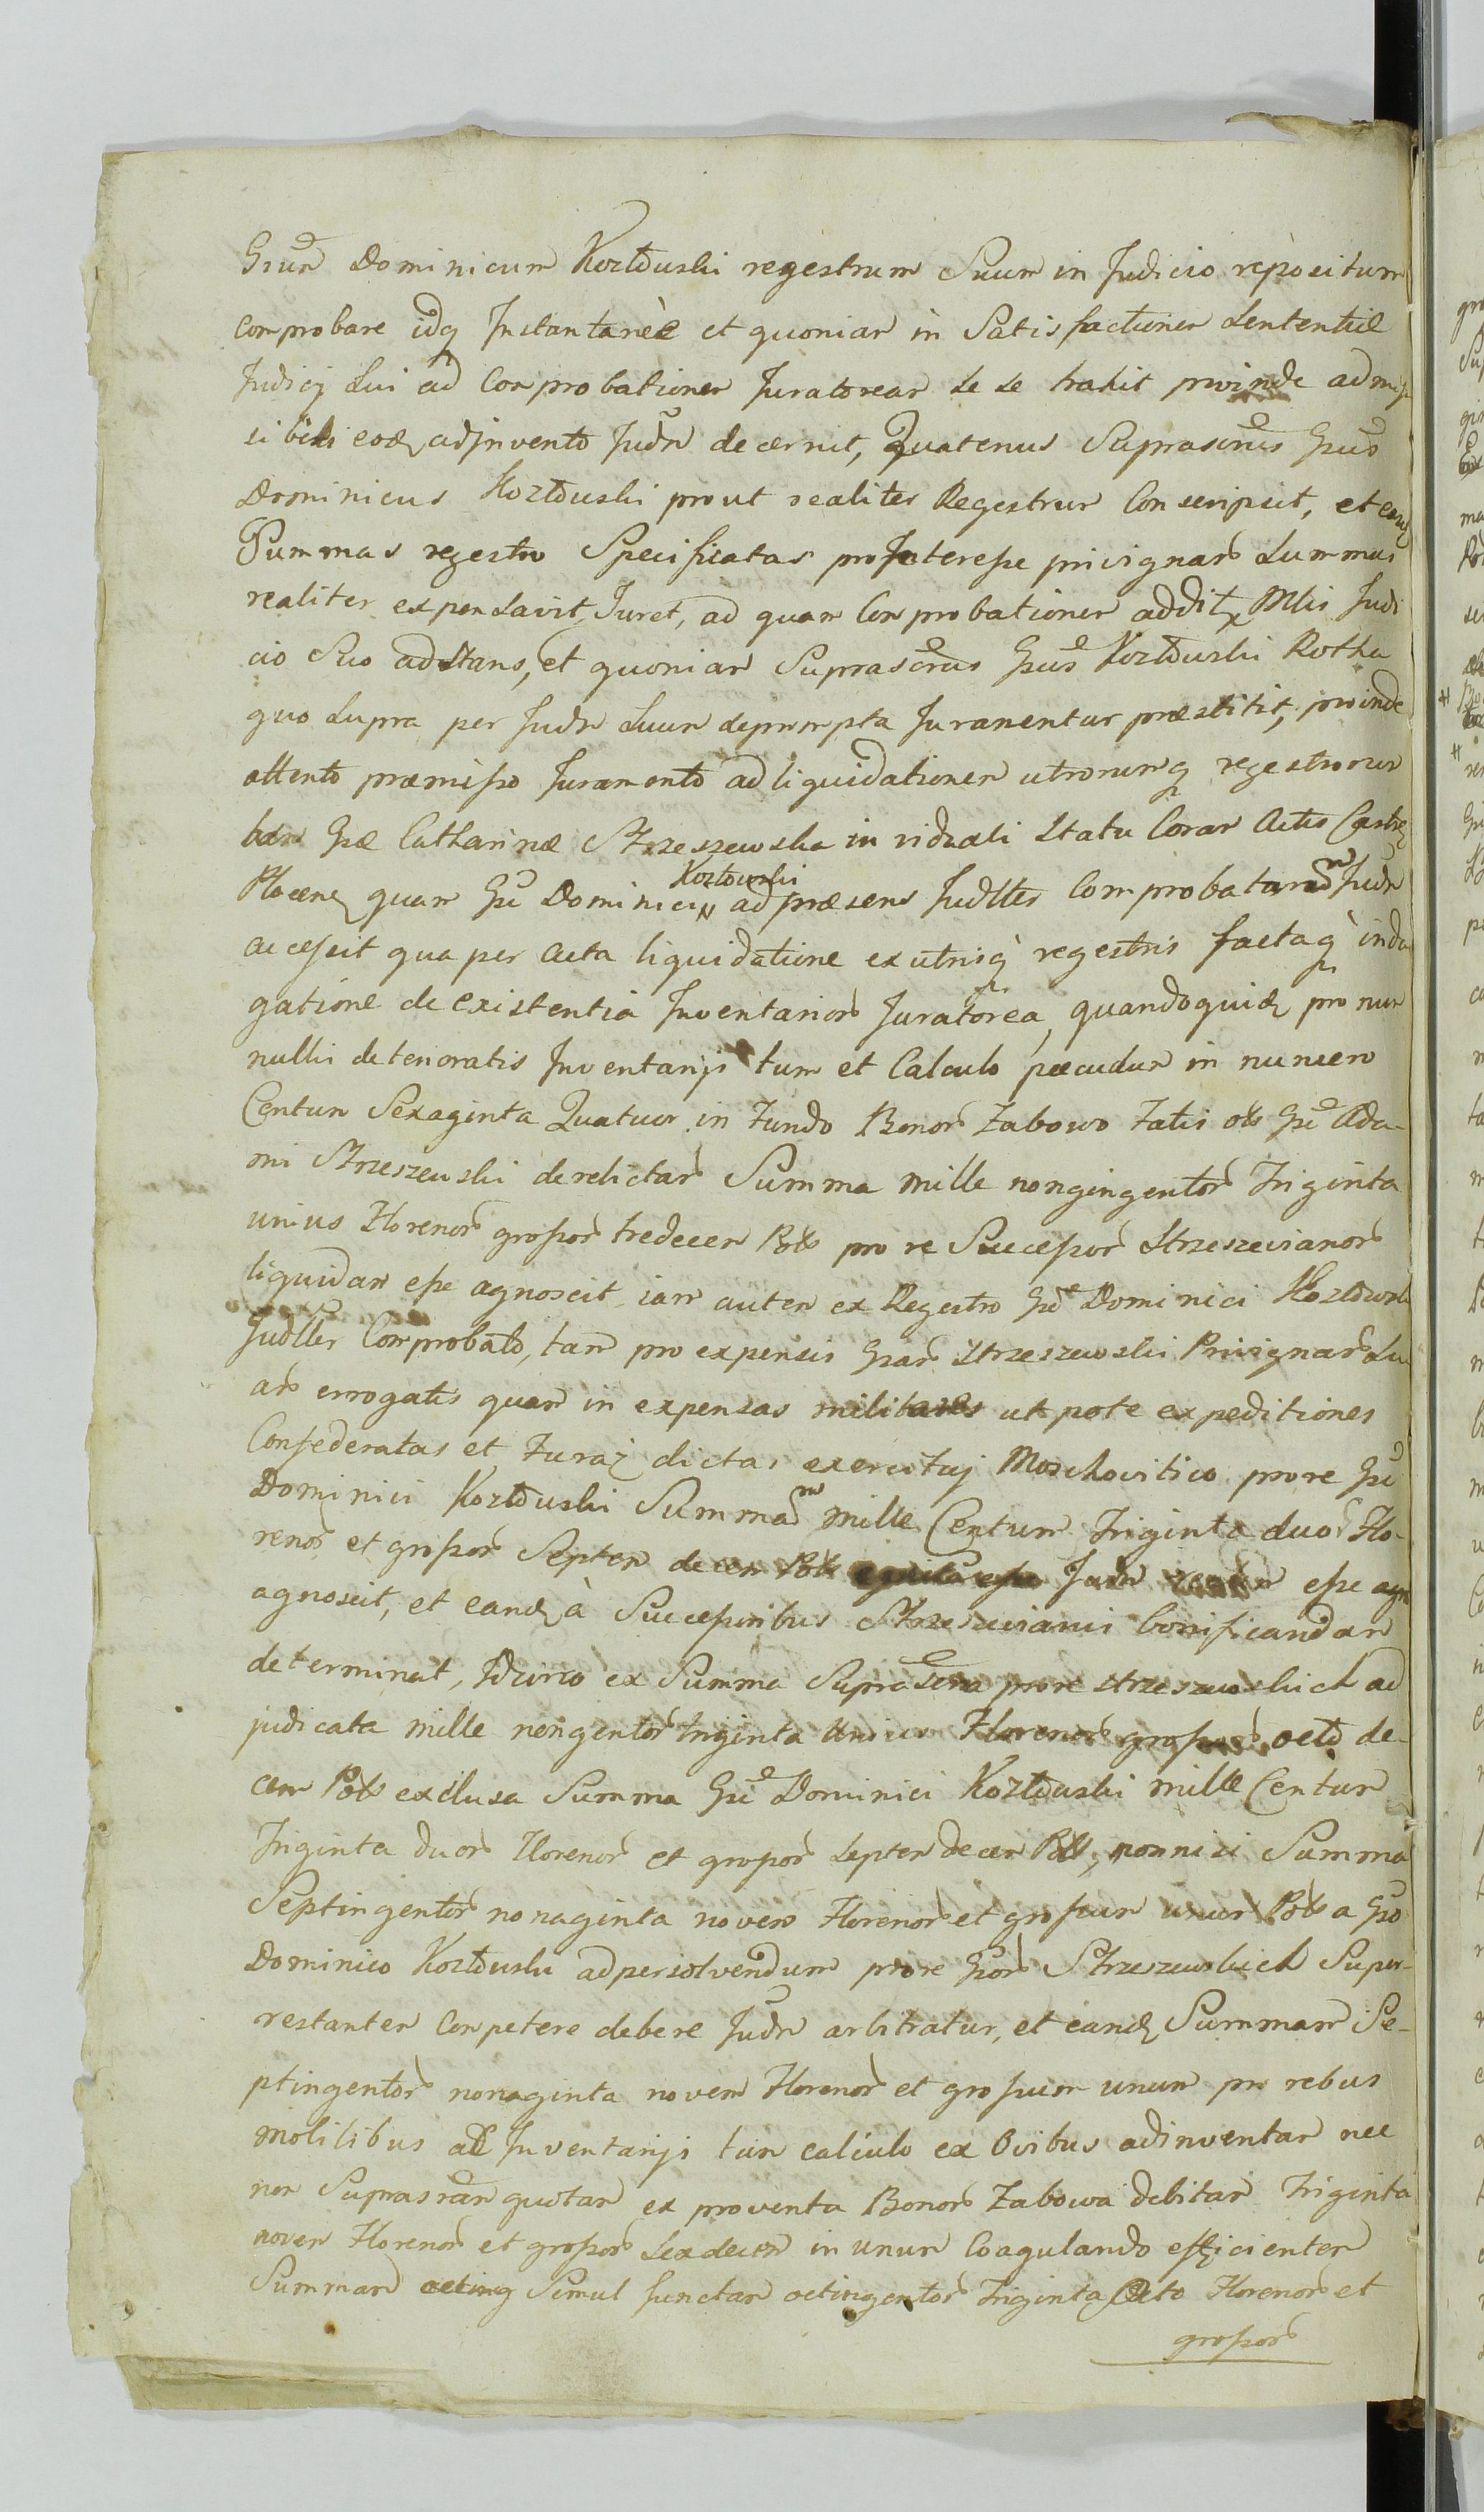 Grum Dominicum Kozłowski regestrum Suum in Judicio repositum
comprobare idq Instantanee et quoniam in Satisfactionem Sententiæ
Judicij Sui ad Comprobationem Juratoream se se trahit proinde admis
sibili eodem adjnvento Judm decernit, Quatenus Suprascrius Gsus
Dominicus Kozłowski prout realiter Regestrum Conscripsit, et easq
Summas regestro Specificatas pro Interesse privignar Summas
realiter expensavit, Juret, ad quam Comprobationem addit Mlis Judi
cio Suo adstans, et quoniam Suprascrius Gsus Kozłowski Rotha
quo supra per Judm Suum deprompta Juramentum præstitit, proinde
attento præmisso Juramento ad liquidationem utrorumq regestrorum
tam Gsæ Catharinæ Strzeszewska in viduali Statu Coram Actis Castr
Plocen quam Gsi Dominici Kozłowski ad præsens Judllter Comprobatarum Judm
accessit qua per acta liquidatione ex utrisq regestris factaq inda
gatione de existentia Inventarior Juratorea, quandoquid pro non
nullis deterioratis Inventarijs tum et Calculo pecudum in numero
Centum Sexaginta Quatuor in Fundo Bonor Zabowo Fatis ols Gsi Ada-
mi Strzeszewski derelictar Summa mille nongingentor Triginta
unius Florenor grossor tredecem Pols pro re Successor Strzeszevianor
liquidam esse agnoscit iam autem ex Regestro Gsi Dominici Kozłowski
Judller Comprobato, tam pro expensis Gsar Strzeszewski Privignar Su
ar errogatis quam in expensas militares ut pote expeditiones
Confederatas et Furaż dictas exercituj Moschovitico pro re Gsi
Dominici Kozłowski Summam mille Centum Triginta duor Flo-
renor et grossor Septem decem Pols esse
agnoscit, et eand à Successoribus Strzeszevianis bonificandam
determinat, Idcirco ex Summa Suprascria pro re Strzeszewskich ad
judicata mille nongentor Triginta Unius Florenor grossor octo de-
cem Pols exclusa Summa Gsi Dominici Kozłowski mille Centum
Triginta duor Florenor et grossor Septem decem Pols, nonnisi Summa
Septingentor nonaginta novem Florenor et grossum unum Pols a Gso
Dominico Kozłowski adpersolvendum pro re Gsor Strzeszewskich Super-
restantem Competere debere Judm arbitratur, et eand Summam Se-
ptingentor nonaginta novem Florenor et grossum unum pro rebus
mobilibus ac Inventarijs tum calculo ex Ovibus adinventam nec
non Suprascriam quotam ex proventu Bonor Zabowa debitam Triginta
novem Florenor et grossor Sexdecem in unum Coagulando efficientem
Summam Simul Junctam octingentor Triginta Octo Florenor et
grossor